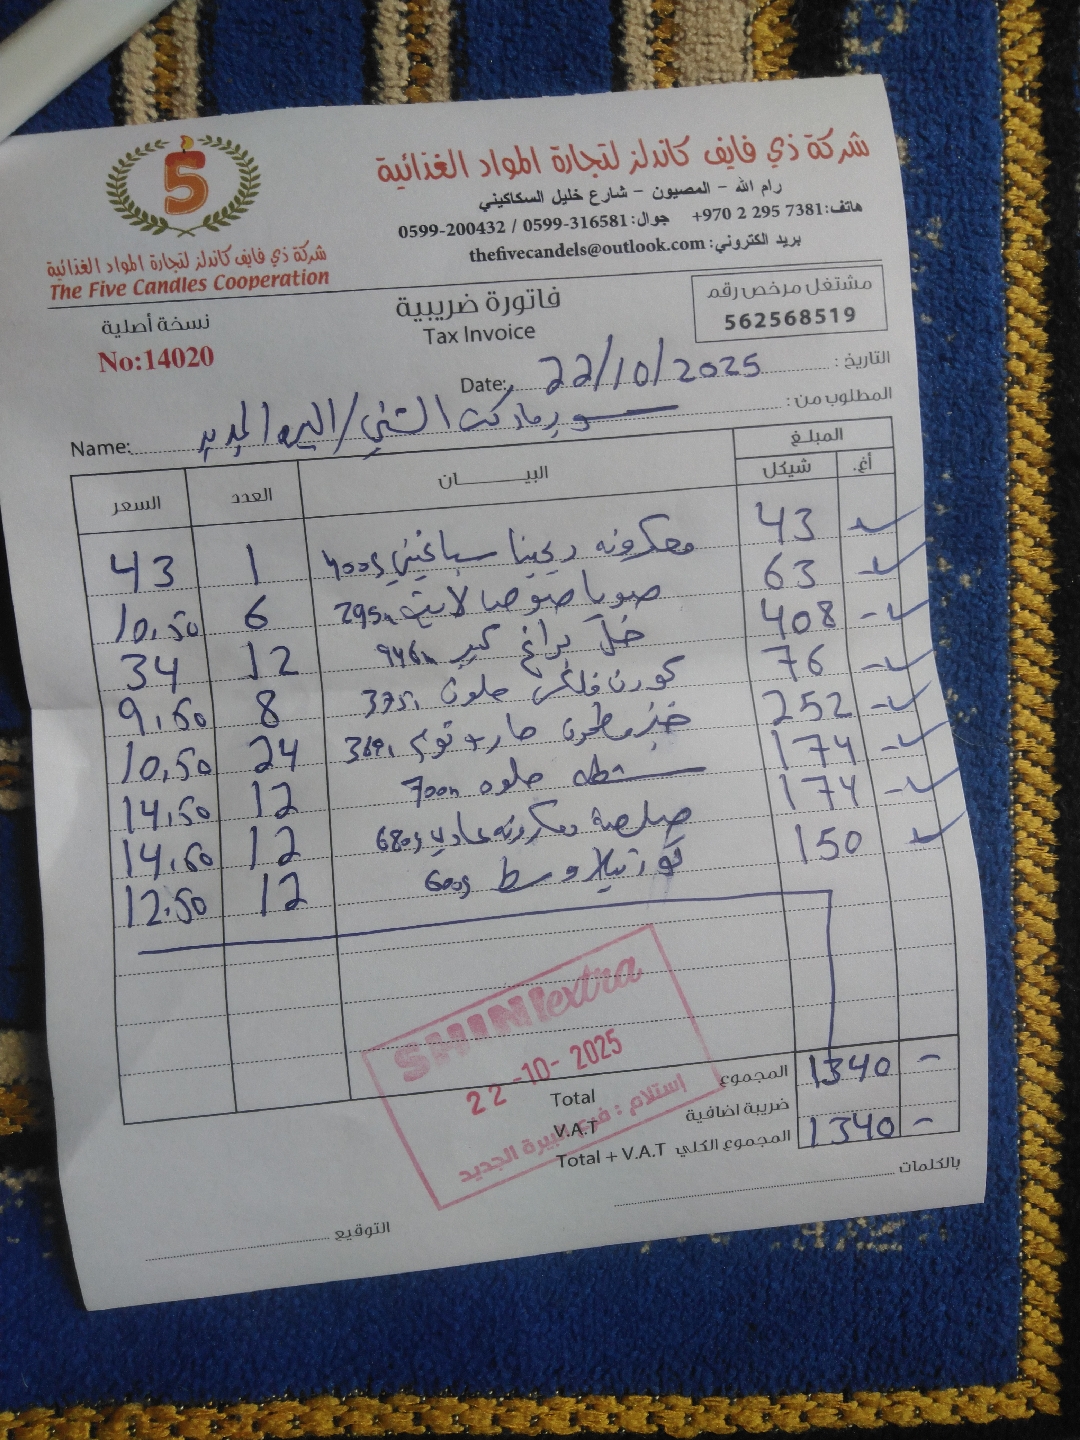 شركة ذي فايف كاندلز لتجارة المواد الغذائية
رام الله - المصيون - شارع خليل السكاكيني
هاتف: +970 2 295 7381 جوال: 0599-316581 / 0599-200432
بريد الكتروني: thefivecandels@outlook.com
5
شركة ذي فايف كاندلز لتجارة المواد الغذائية
The Five Candles Cooperation
مشتغل مرخص رقم
562568519
فاتورة ضريبية
Tax Invoice
نسخة أصلية
No:14020
التاريخ: 22/10/2025 Date:
المطلوب من: سوبرماركت الشني/البيره الجديد Name:
المبلغ البيـــــان العدد السعر
أغ. شيكل
43 - معكرونه ريجينا سباغيتي 400g 1 43
63 - صويا صوص لايت 295 6 10,50
408 - خل براغ كبير 946 12 34
76 - كورن فلكس حلون 375 8 9,50
252 - خبز حار + ثوم 369 24 10,50
174 - شطه حلوه 700 12 14,50
174 - صلصة معكرونه عادي 680g 12 14,50
150 - تورتيلا وسط 600g 12 12,50
SHINI extra
22-10-2025
إستلام: فرع البيرة الجديد
المجموع Total 1340 -
ضريبة اضافية V.A.T
المجموع الكلي Total + V.A.T 1340 -
بالكلمات
التوقيع